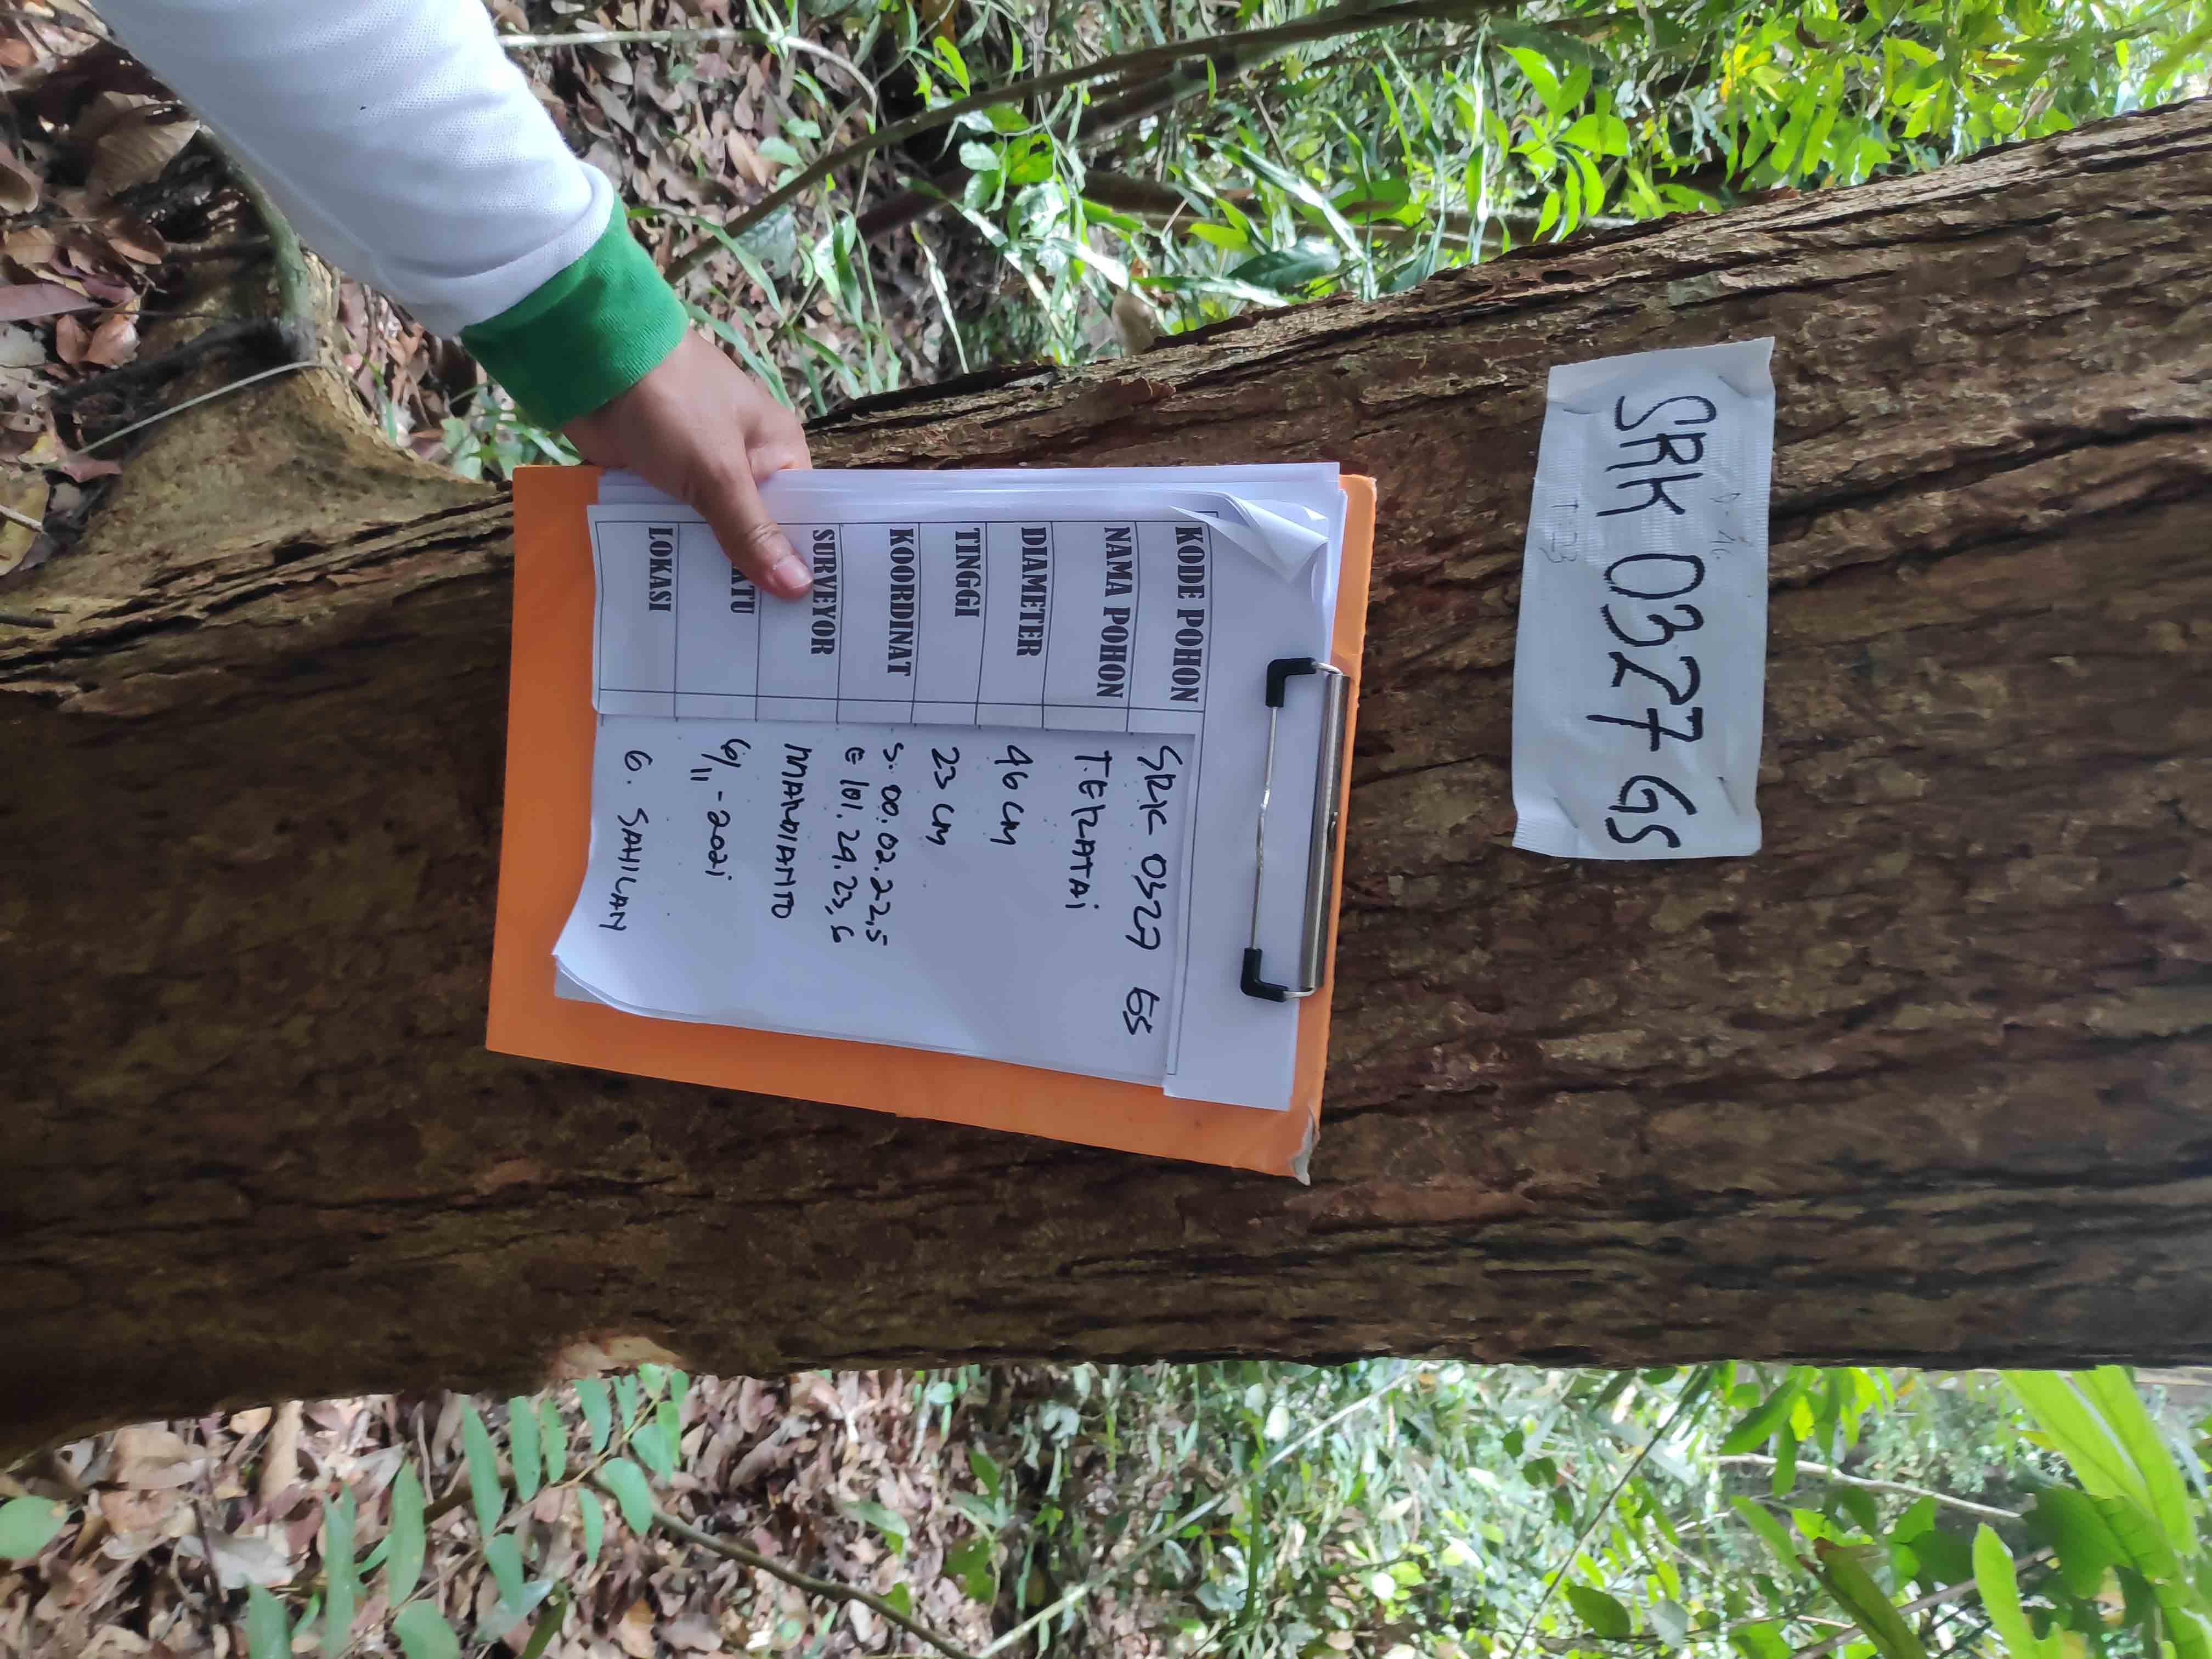 D= 46
SRK 0327 GS
T=23
KODE POHON SRK 0327 GS
NAMA POHON TERATAI
DIAMETER 46 CM
TINGGI 23 CM
KOORDINAT S. 00.02.22,5
E 101.29.23,6
SURVEYOR MARDIANTO
KTU 6/11-2021
LOKASI G. SAHILAN